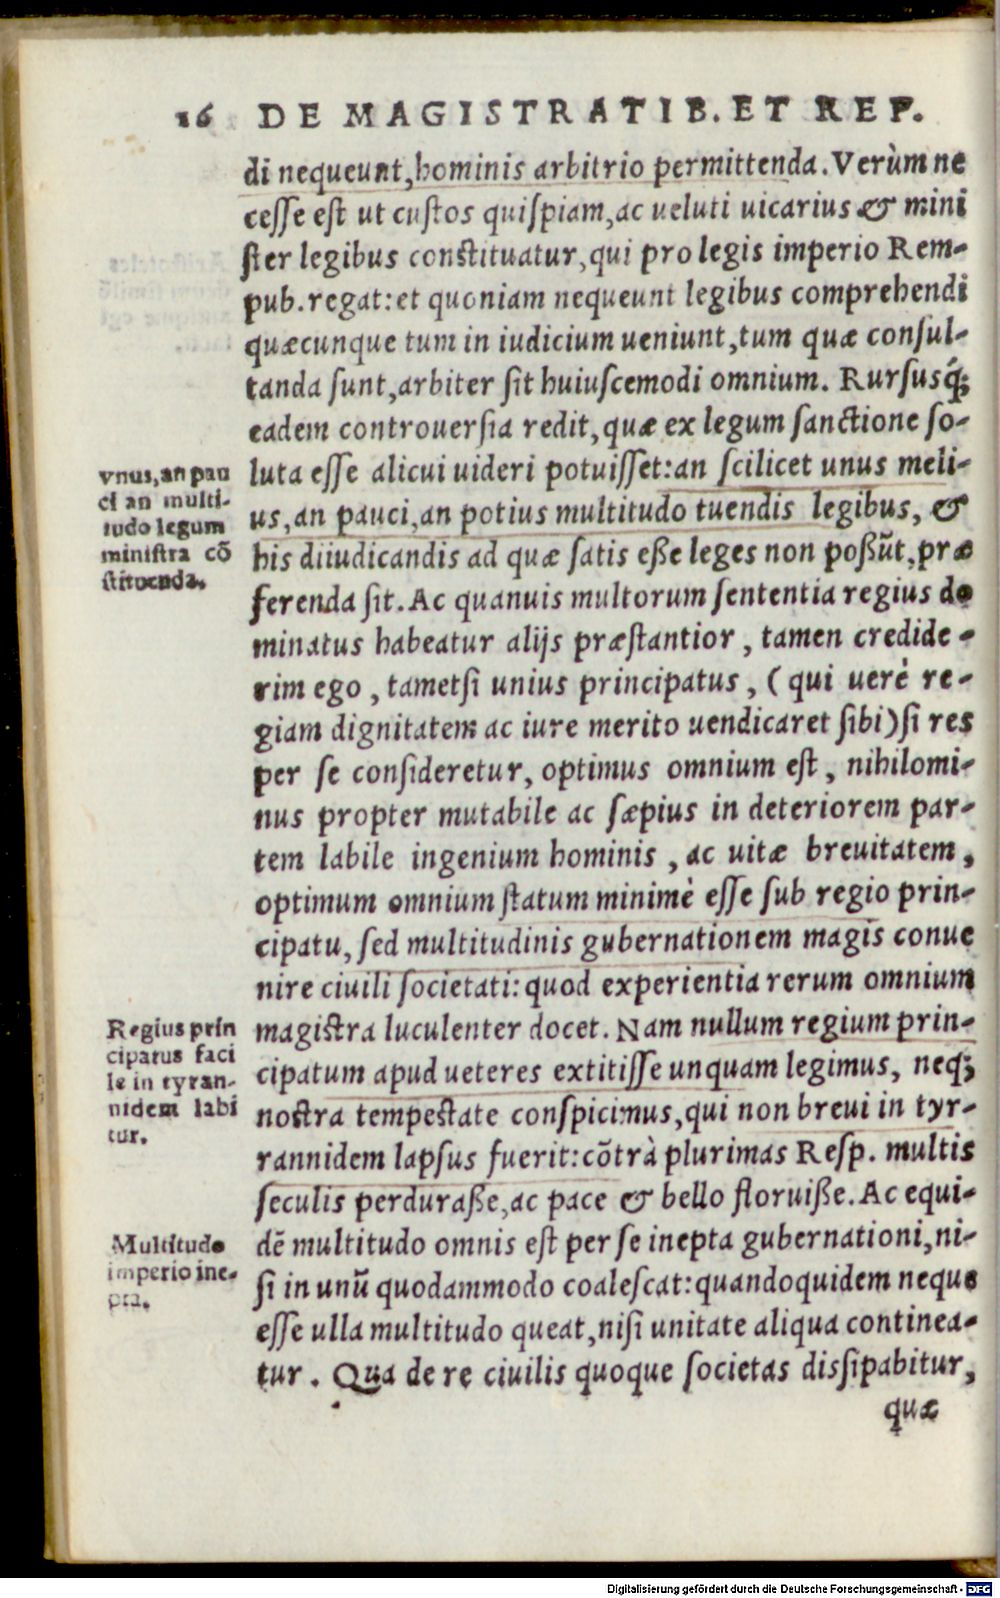 16 DE MAGISTRATIB. ET REP.
di nequeunt, hominis arbitrio permittenda. Verùm ne
cesse est ut custos quispiam, ac ueluti uicarius & mini
ster legibus constituatur, qui pro legis imperio Rem-
pub. regat: et quoniam nequeunt legibus comprehendi
quæcunque tum in iudicium ueniunt, tum quæ consul-
tanda sunt, arbiter sit huiuscemodi omnium. Rursusq́;
eadem controuersia redit, quæ ex legum sanctione so-
luta esse alicui uideri potuisset: an scilicet unus meli-
us, an pauci, an potius multitudo tuendis legibus, &
his diiudicandis ad quæ satis eße leges non poßũt, præ
ferenda sit. Ac quanuis multorum sententia regius do
minatus habeatur alijs præstantior, tamen credide-
rim ego, tametsi unius principatus, (qui uerè re-
giam dignitatem ac iure merito uendicaret sibi) si res
per se consideretur, optimus omnium est, nihilomi-
nus propter mutabile ac sæpius in deteriorem par-
tem labile ingenium hominis, ac uitæ breuitatem,
optimum omnium statum minimè esse sub regio prin-
cipatu, sed multitudinis gubernationem magis conue
nire ciuili societati: quod experientia rerum omnium
magistra luculenter docet. Nam nullum regium prin-
cipatum apud ueteres extitisse unquam legimus, neq;
nostra tempestate conspicimus, qui non breui in tyr-
rannidem lapsus fuerit: cõtrà plurimas Resp. multis
seculis perduraße, ac pace & bello floruiße. Ac equi-
dẽ multitudo omnis est per se inepta gubernationi, ni-
si in unũ quodammodo coalescat: quandoquidem neque
esse ulla multitudo queat, nisi unitate aliqua continea-
tur. Qua de re ciuilis quoque societas dissipabitur,
quæ
Vnus, an pau
ci an multi-
tudo legum
ministra cõ
stituenda.
Regius prin
cipatus faci
le in tyran-
nidem labi
tur.
Multitudo
imperio ine-
pta.
Digitalisierung gefördert durch die Deutsche Forschungsgemeinschaft - DFG